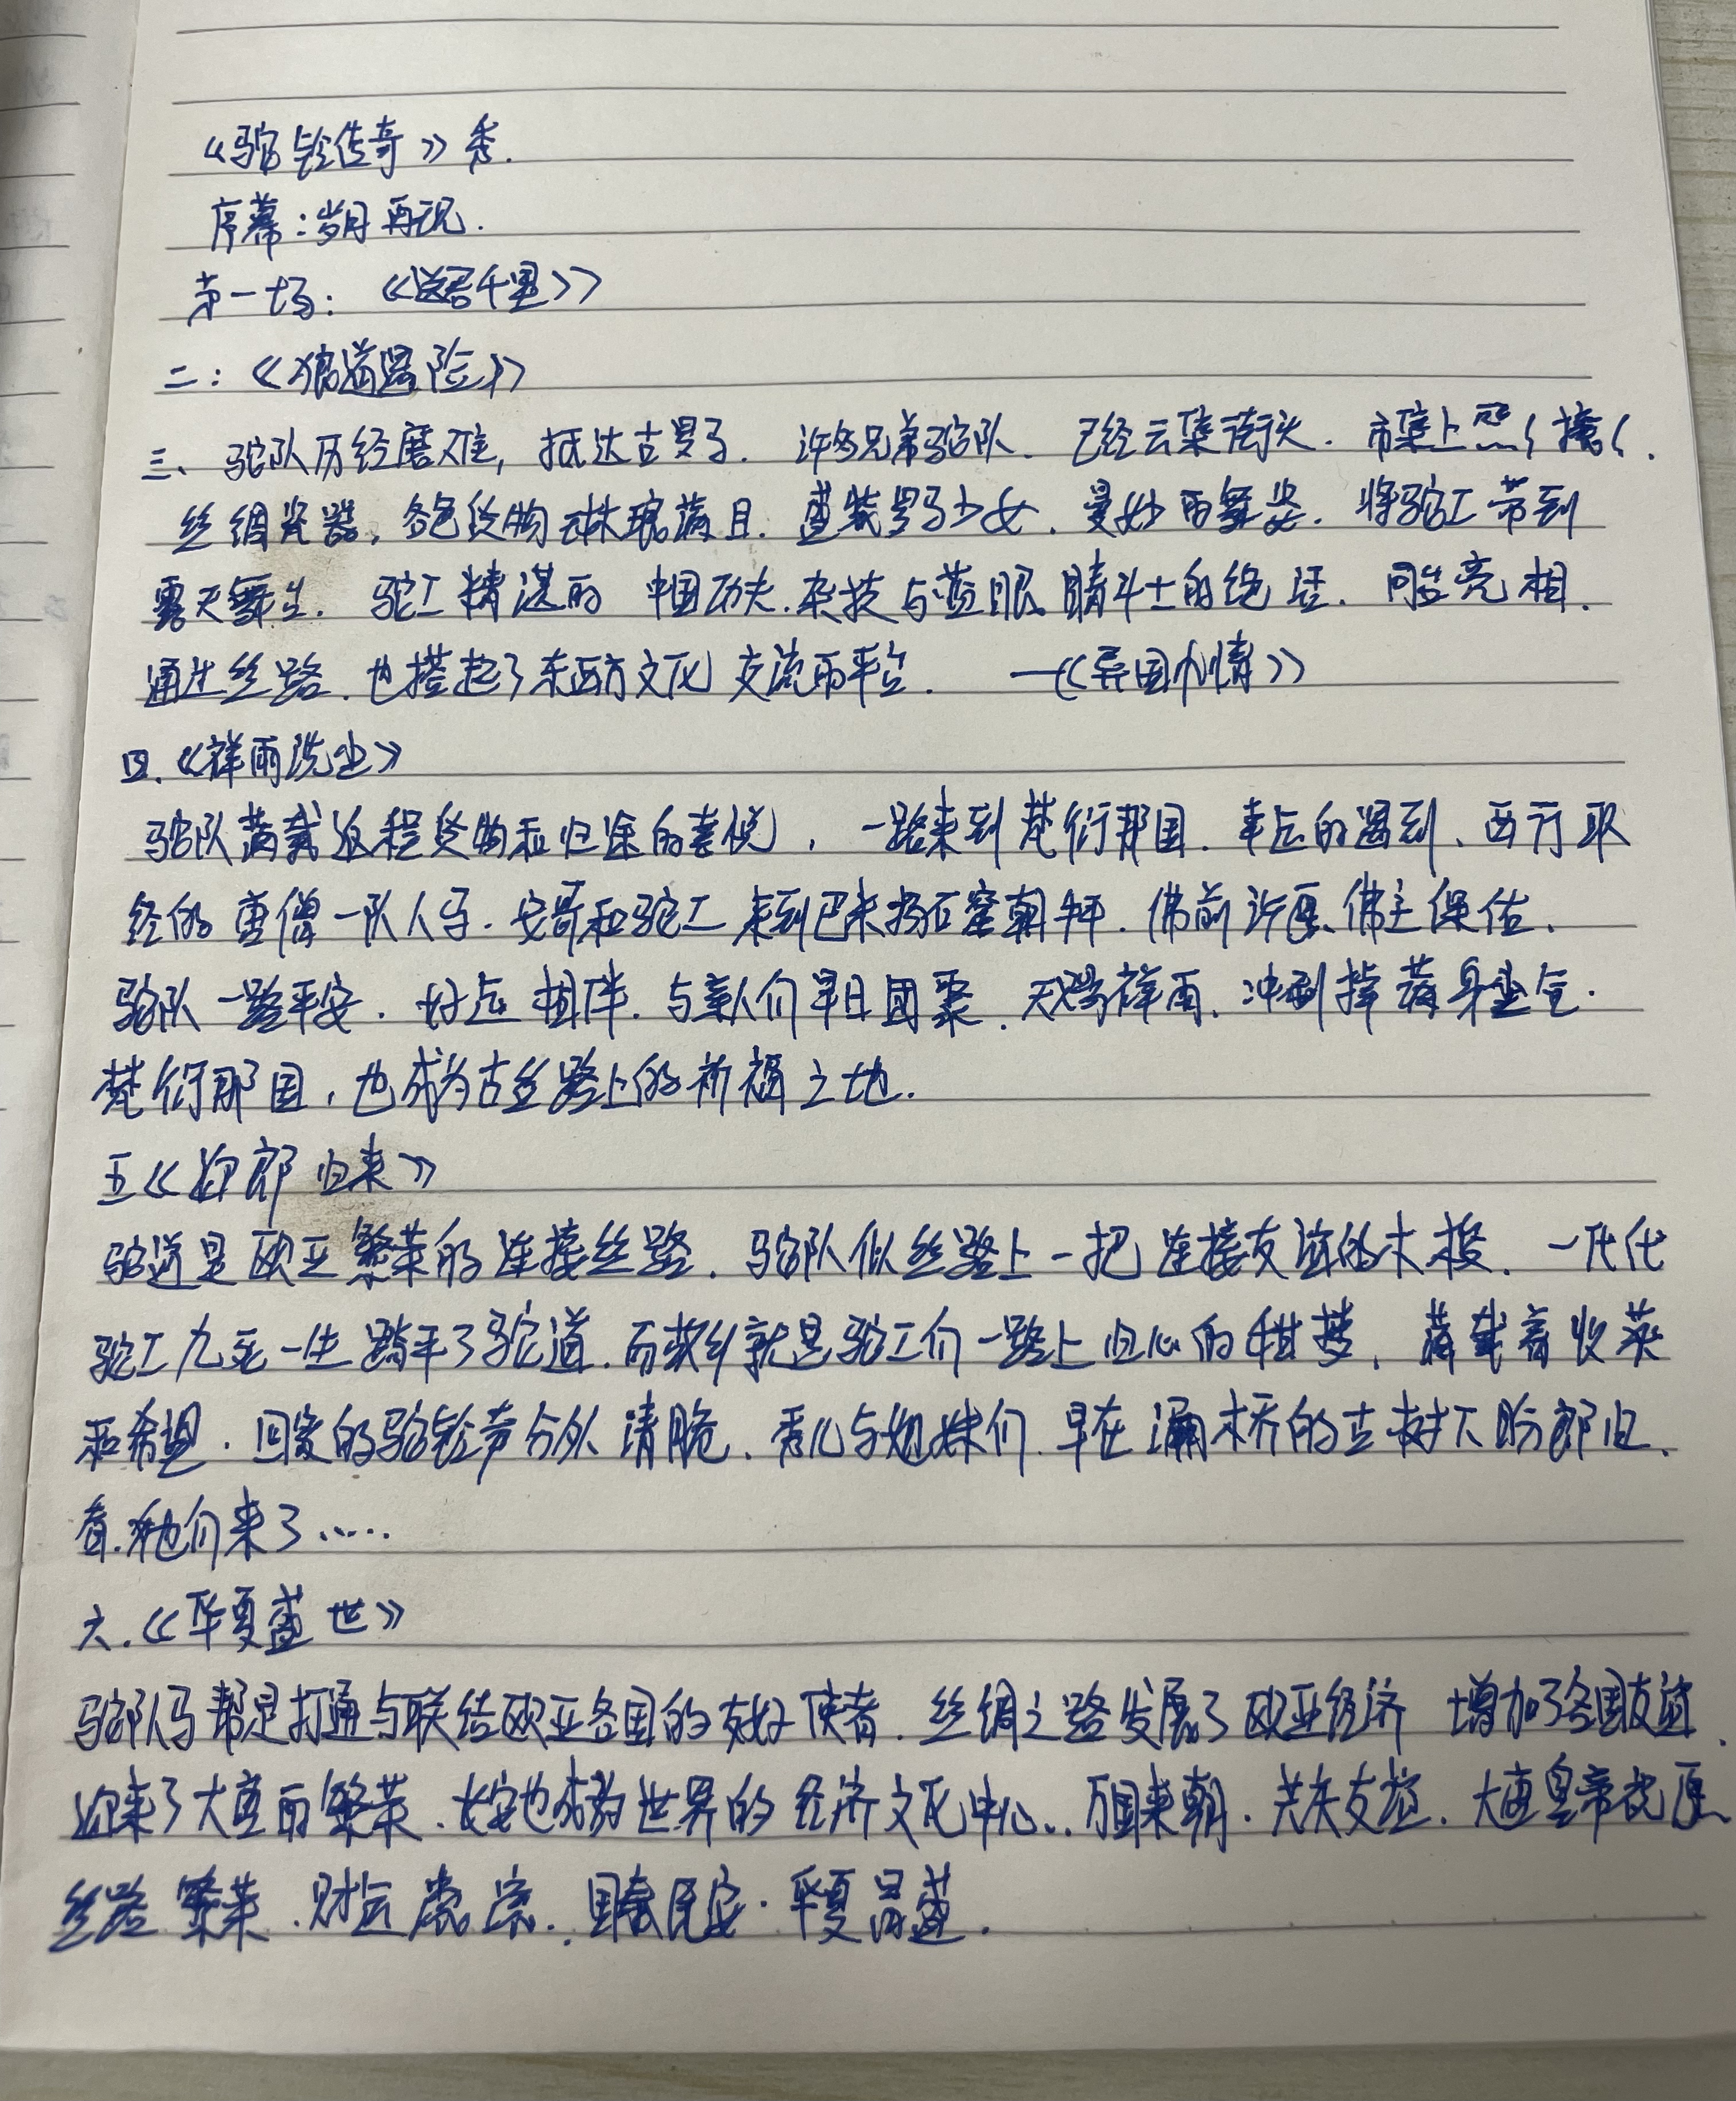 《驼铃传奇》秀.
序幕:岁月再现.
第一场: 《送君千里》
二:《狼道遇险》
三、驼队历经磨难,抵达古罗马. 许多兄弟驼队、已经云集街头. 市集上熙く攘く.
丝绸瓷器,各色货物琳琅满目. 盛装罗马少女、曼妙的舞姿. 将驼工带到
露天舞台. 驼工精湛的 中国功夫.杂技与蓝眼睛斗士的绝活. 同台亮相.
通过丝路.也搭起了东西方文化交流的平台. —《异国风情》
四.《祥雨洗尘》
驼队满载返程货物和归途的喜悦,一路来到梵衍那国.幸运的遇到、西行取
经的唐僧一队人马.安哥和驼工来到巴米扬石窟朝拜.佛前许愿、佛主保佑.
驼队一路平安.好运相伴.与亲人们早日团聚.天赐祥雨.冲刷掉满身尘土.
梵衍那国,也成为古丝路上的祈福之地.
五《迎郎归来》
驼道是欧亚繁荣的连接丝路.驼队似丝路上一把连接友谊的木梭.一代代
驼工九死一生踏平了驼道.而故乡就是驼工们一路上归心的期梦,满载着收获
和希望.回家的驼铃声分外清脆.秀儿与姐妹们.早在灞桥的古树下盼郎归.
看.他们来了.....
六.《华夏盛世》
驼队马帮是打通与联结欧亚各国的友好使者.丝绸之路发展了欧亚经济 增加了各国友谊.
迎来了大唐的繁荣.长安也成为世界的经济文化中心..万国来朝.共庆友谊.大唐皇帝祝愿
丝路繁荣.财运 .国泰民安.华夏昌盛.